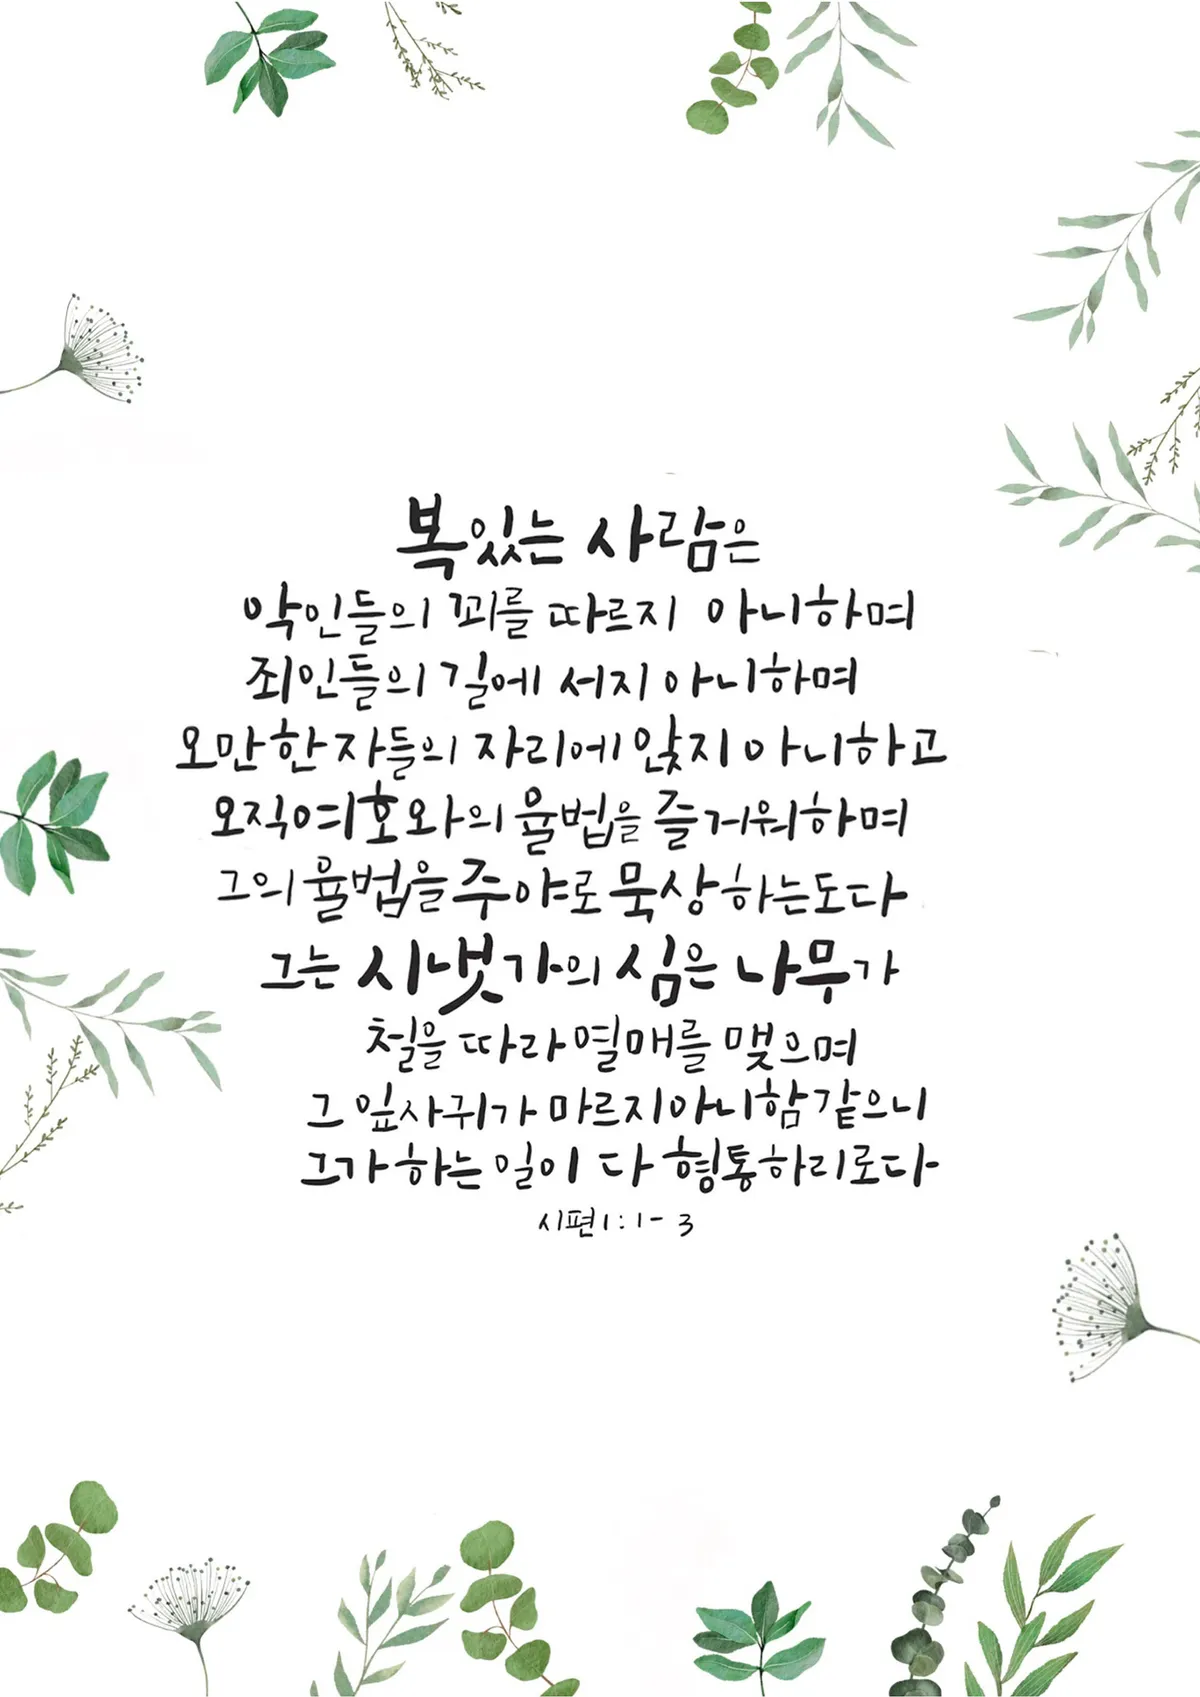 복있는 사람은
악인들의 꾀를 따르지 아니하며
죄인들의 길에 서지 아니하며
오만한 자들의 자리에 앉지 아니하고
오직 여호와의 율법을 즐거워하며
그의 율법을 주야로 묵상하는도다
그는 시냇가의 심은 나무가
철을 따라 열매를 맺으며
그 잎사귀가 마르지 아니함 같으니
그가 하는 일이 다 형통하리로다
시편 1 : 1 - 3